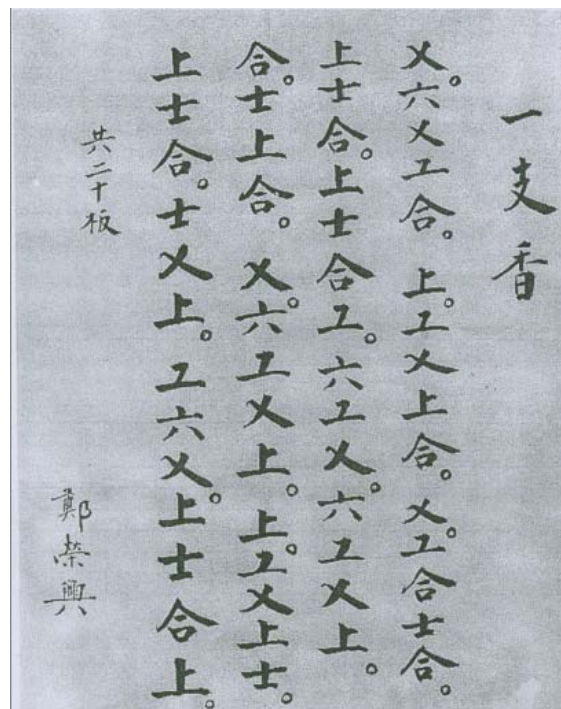 一支香
乂。六乂工合。上。工乂上合。乂。工合士合。
上士合。上士合工。六工乂。六工乂上。
合。士上合。乂。六工乂上。上。工乂上士。
上士合。士乂上。工六乂。上士合上。
共二十板
鄭榮興